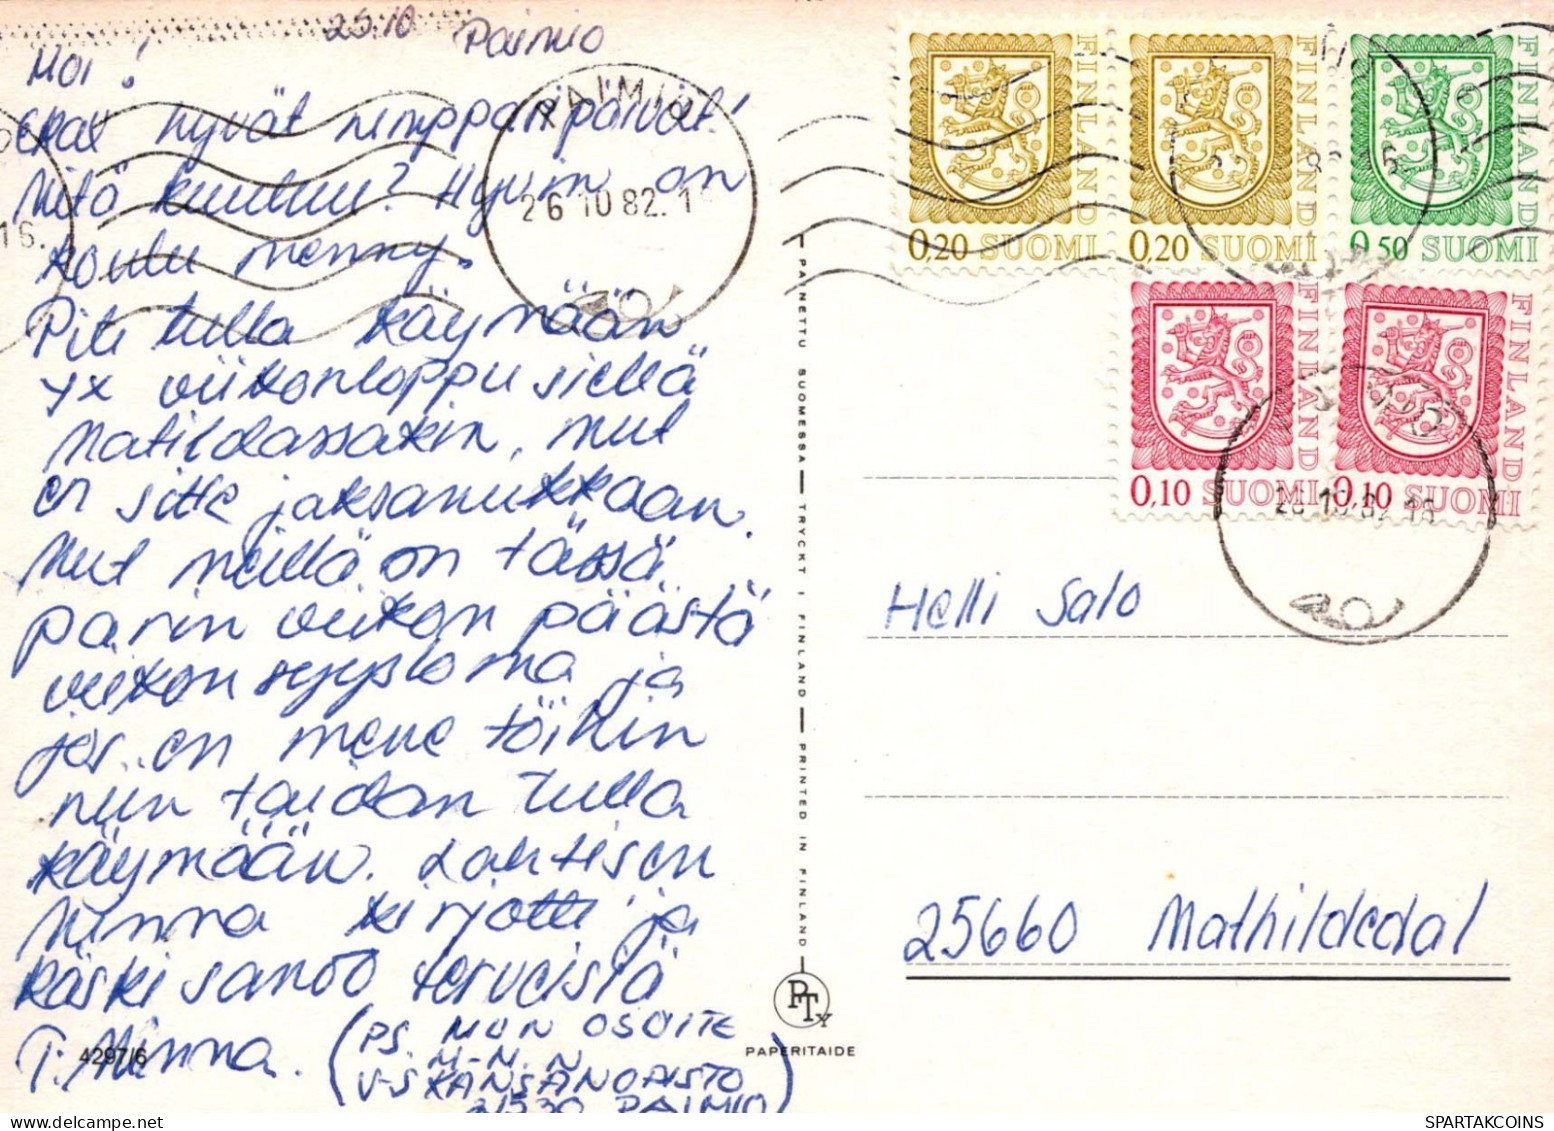 25.10 Paimio
Moi!
hyvät nimppäripäivät!
Mitä kuuluu? Hyvin on
koulu menny.
Piti tulla käymään
yx viikonloppu siellä
Matildassakin, mut
en sitte jaksanukkaan.
Mut meillä on tässä
parin viikon päästä
viikon syysloma ja
jos en mene töihin
niin taidan tulla
käymään. Lahtisen
Minna kirjotti ja
käski sanoo terveisiä
T. Minna.
(PS. MUN OSOITE
M-N. N
V-S KANSANOPISTO
21530 PAIMIO)
4297/6
PAIMIO
26.10.82.1
16.
PAINETTU SUOMESSA — TRYCKT I FINLAND — PRINTED IN FINLAND
PTy
PAPERITAIDE
0,20 SUOMI FINLAND
0,20 SUOMI FINLAND
0,50 SUOMI FINLAND
0,10 SUOMI FINLAND
0,10 SUOMI FINLAND
26.10.82.16
Helli Salo
25660 Mathildedal
SPARTAKCOINS.COM